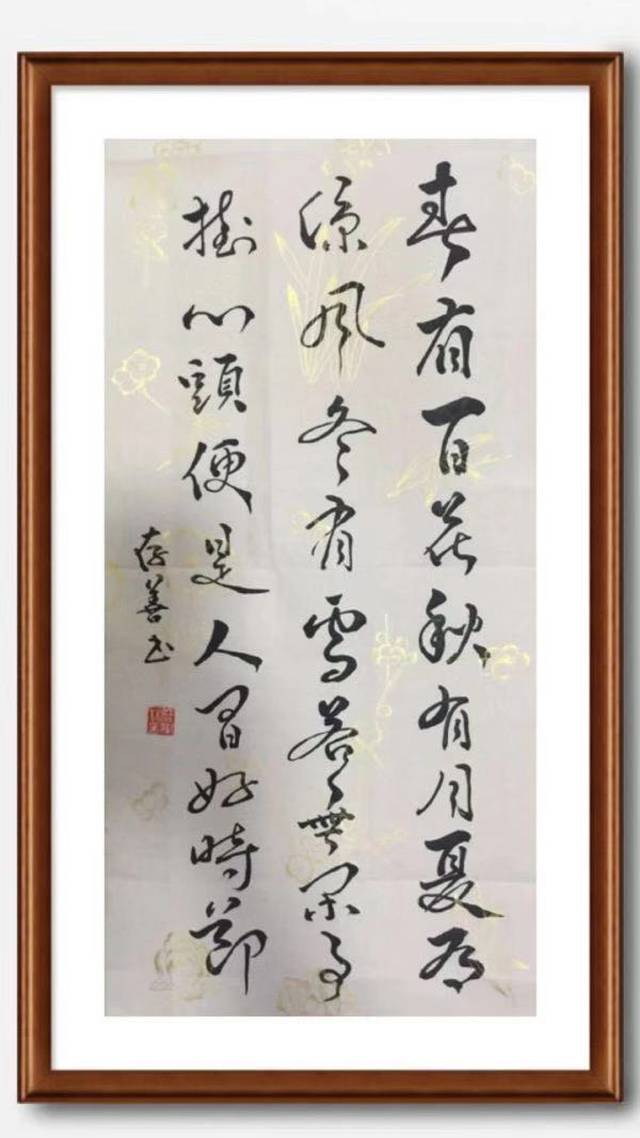 春有百花秋有月夏有
涼風冬有雪若無閑事
掛心頭便是人間好時節
存善书